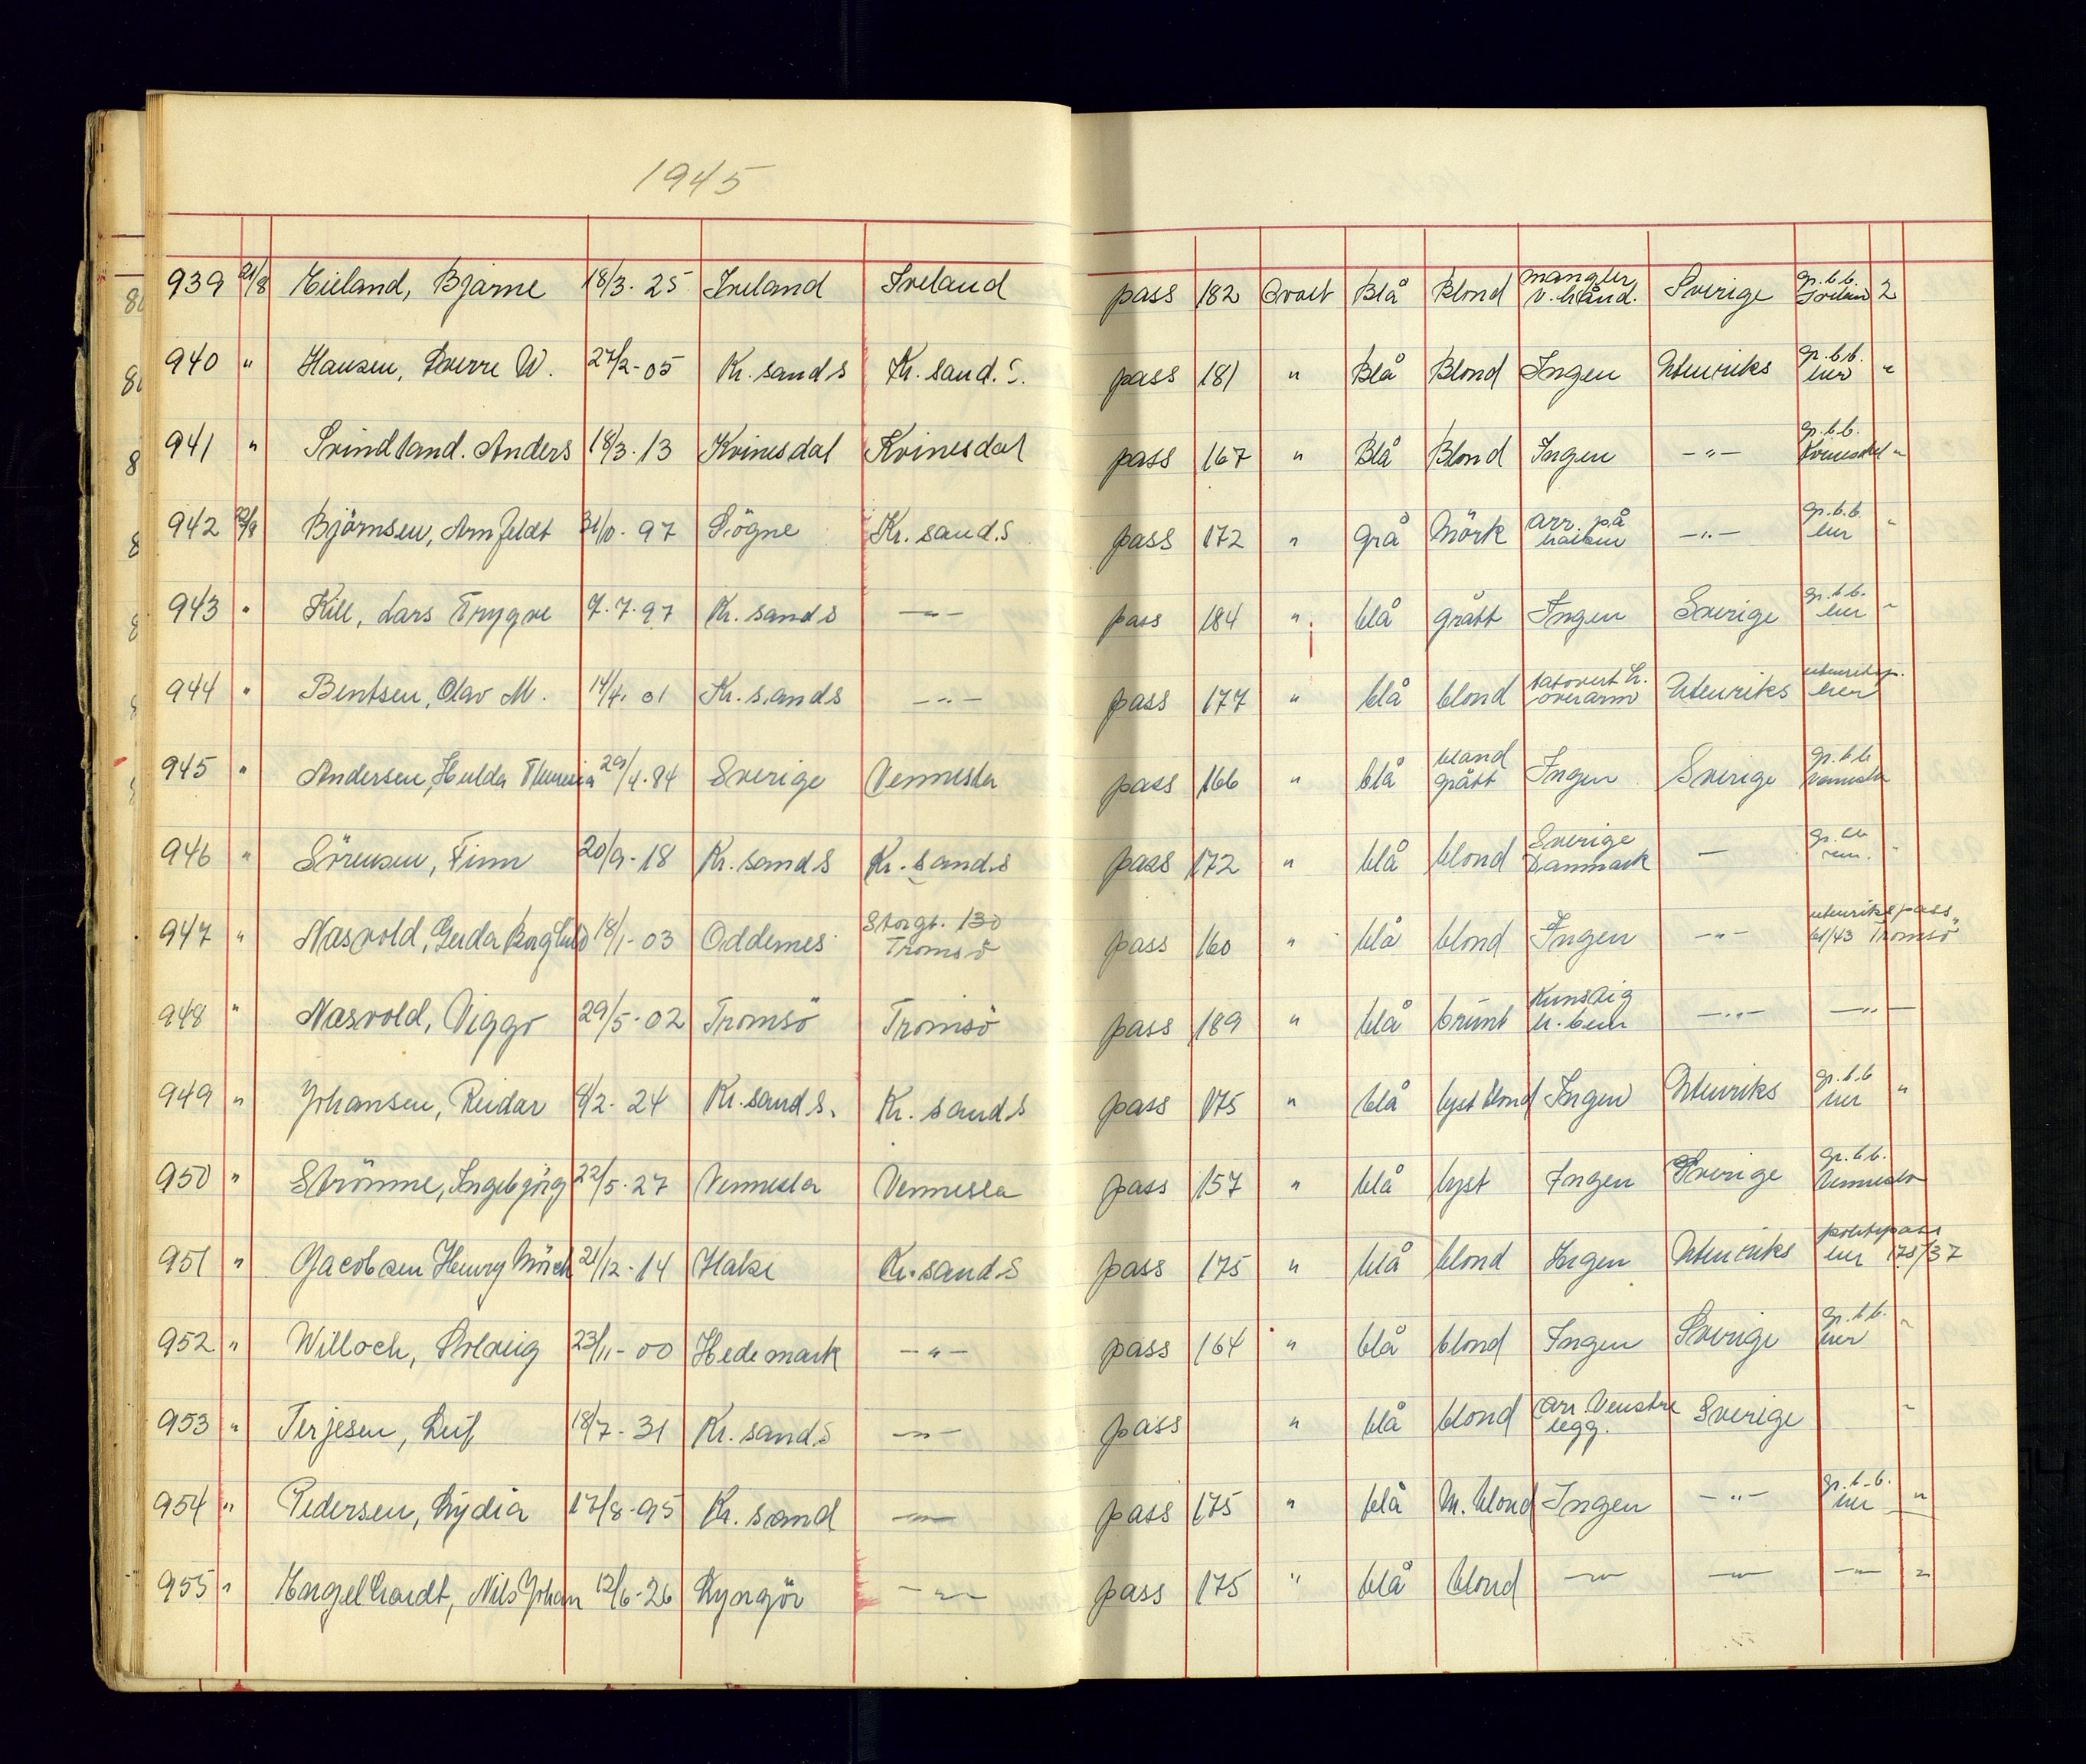 1945
939 21/8 Hieland, Bjarne 18/3. 25 Iveland Iveland pass 182 Ovalt Blå Blond mangler v. hånd. Sverige gr.b.b. Iveland 2
940 " Hansen, Sverre W. 27/2-05 Kr. sand S Kr. sand. S. pass 181 " Blå Blond Ingen Utenriks gr.b.b. her "
941 " Svindland. Anders 18/3. 13 Kvinesdal Kvinesdal pass 167 " Blå Blond Ingen -"- gr.b.b. Kvinesdal "
942 22/8 Björnsen, Arnfeldt 31/10. 97 Sögne Kr. sand.S pass 172 " grå Mörk arr. på haken -"- gr.b.b. her "
943 " Kill, Lars Trygve 7.7.97 Kr. sand S -"- pass 184 " blå grått Ingen Sverige gr.b.b. her "
944 " Bentsen, Olav M. 14/4. 01 Kr. sand S -"- pass 177 " blå blond tatovert h. overarm Utenriks utenriksp. her
945 " Andersen, Hulda Theresia 29/4.84 Sverige Vennesla pass 166 " blå bland grått Ingen Sverige gr.b.b Vennesla
946 " Sörensen, Finn 20/9-18 Kr. sand S Kr. sand.S pass 172 " blå blond Sverige Danmark - gr. bb her. "
947 " Næsvold, Gerda Borghild 18/1-03 Oddernes Storgt. 130 Tromsö pass 160 " blå blond Ingen -"- utenrikspass 61/43 Tromsö "
948 " Næsvold, Viggo 29/5-02 Tromsö Tromsö pass 189 " blå brunt Kunstig h. ben -"- -"-
949 " Johansen, Reidar 8/2. 24 Kr. sand S. Kr. sand S pass 175 " blå lyst blond Ingen Utenriks gr.b.b her "
950 " Strömme, Ingebjörg 22/5.27 Vennesla Vennesla pass 157 " blå lyst Ingen Sverige gr.b.b. Vennesla
951 " Jacobsen Henry Mörch 21/12-14 Halse Kr. sand S pass 175 " blå blond Ingen Utenriks politipass her 175/37
952 " Willoch, Solveig 23/11-00 Hedemark -"- pass 164 " blå blond Ingen Sverige gr.b.b. her "
953 " Terjesen, Leif 18/7-31 Kr. sand.S -"- pass " blå blond arr. Venstre legg. Sverige "
954 " Pedersen, Lydia 17/8-95 Kr. sand -"- pass 175 " blå M. blond Ingen -"- gr.b.b. her "
955 " Engelhardt, Nils Johan 12/6-26 Lyngör -"- pass 175 " blå blond -"- -"- -"- "